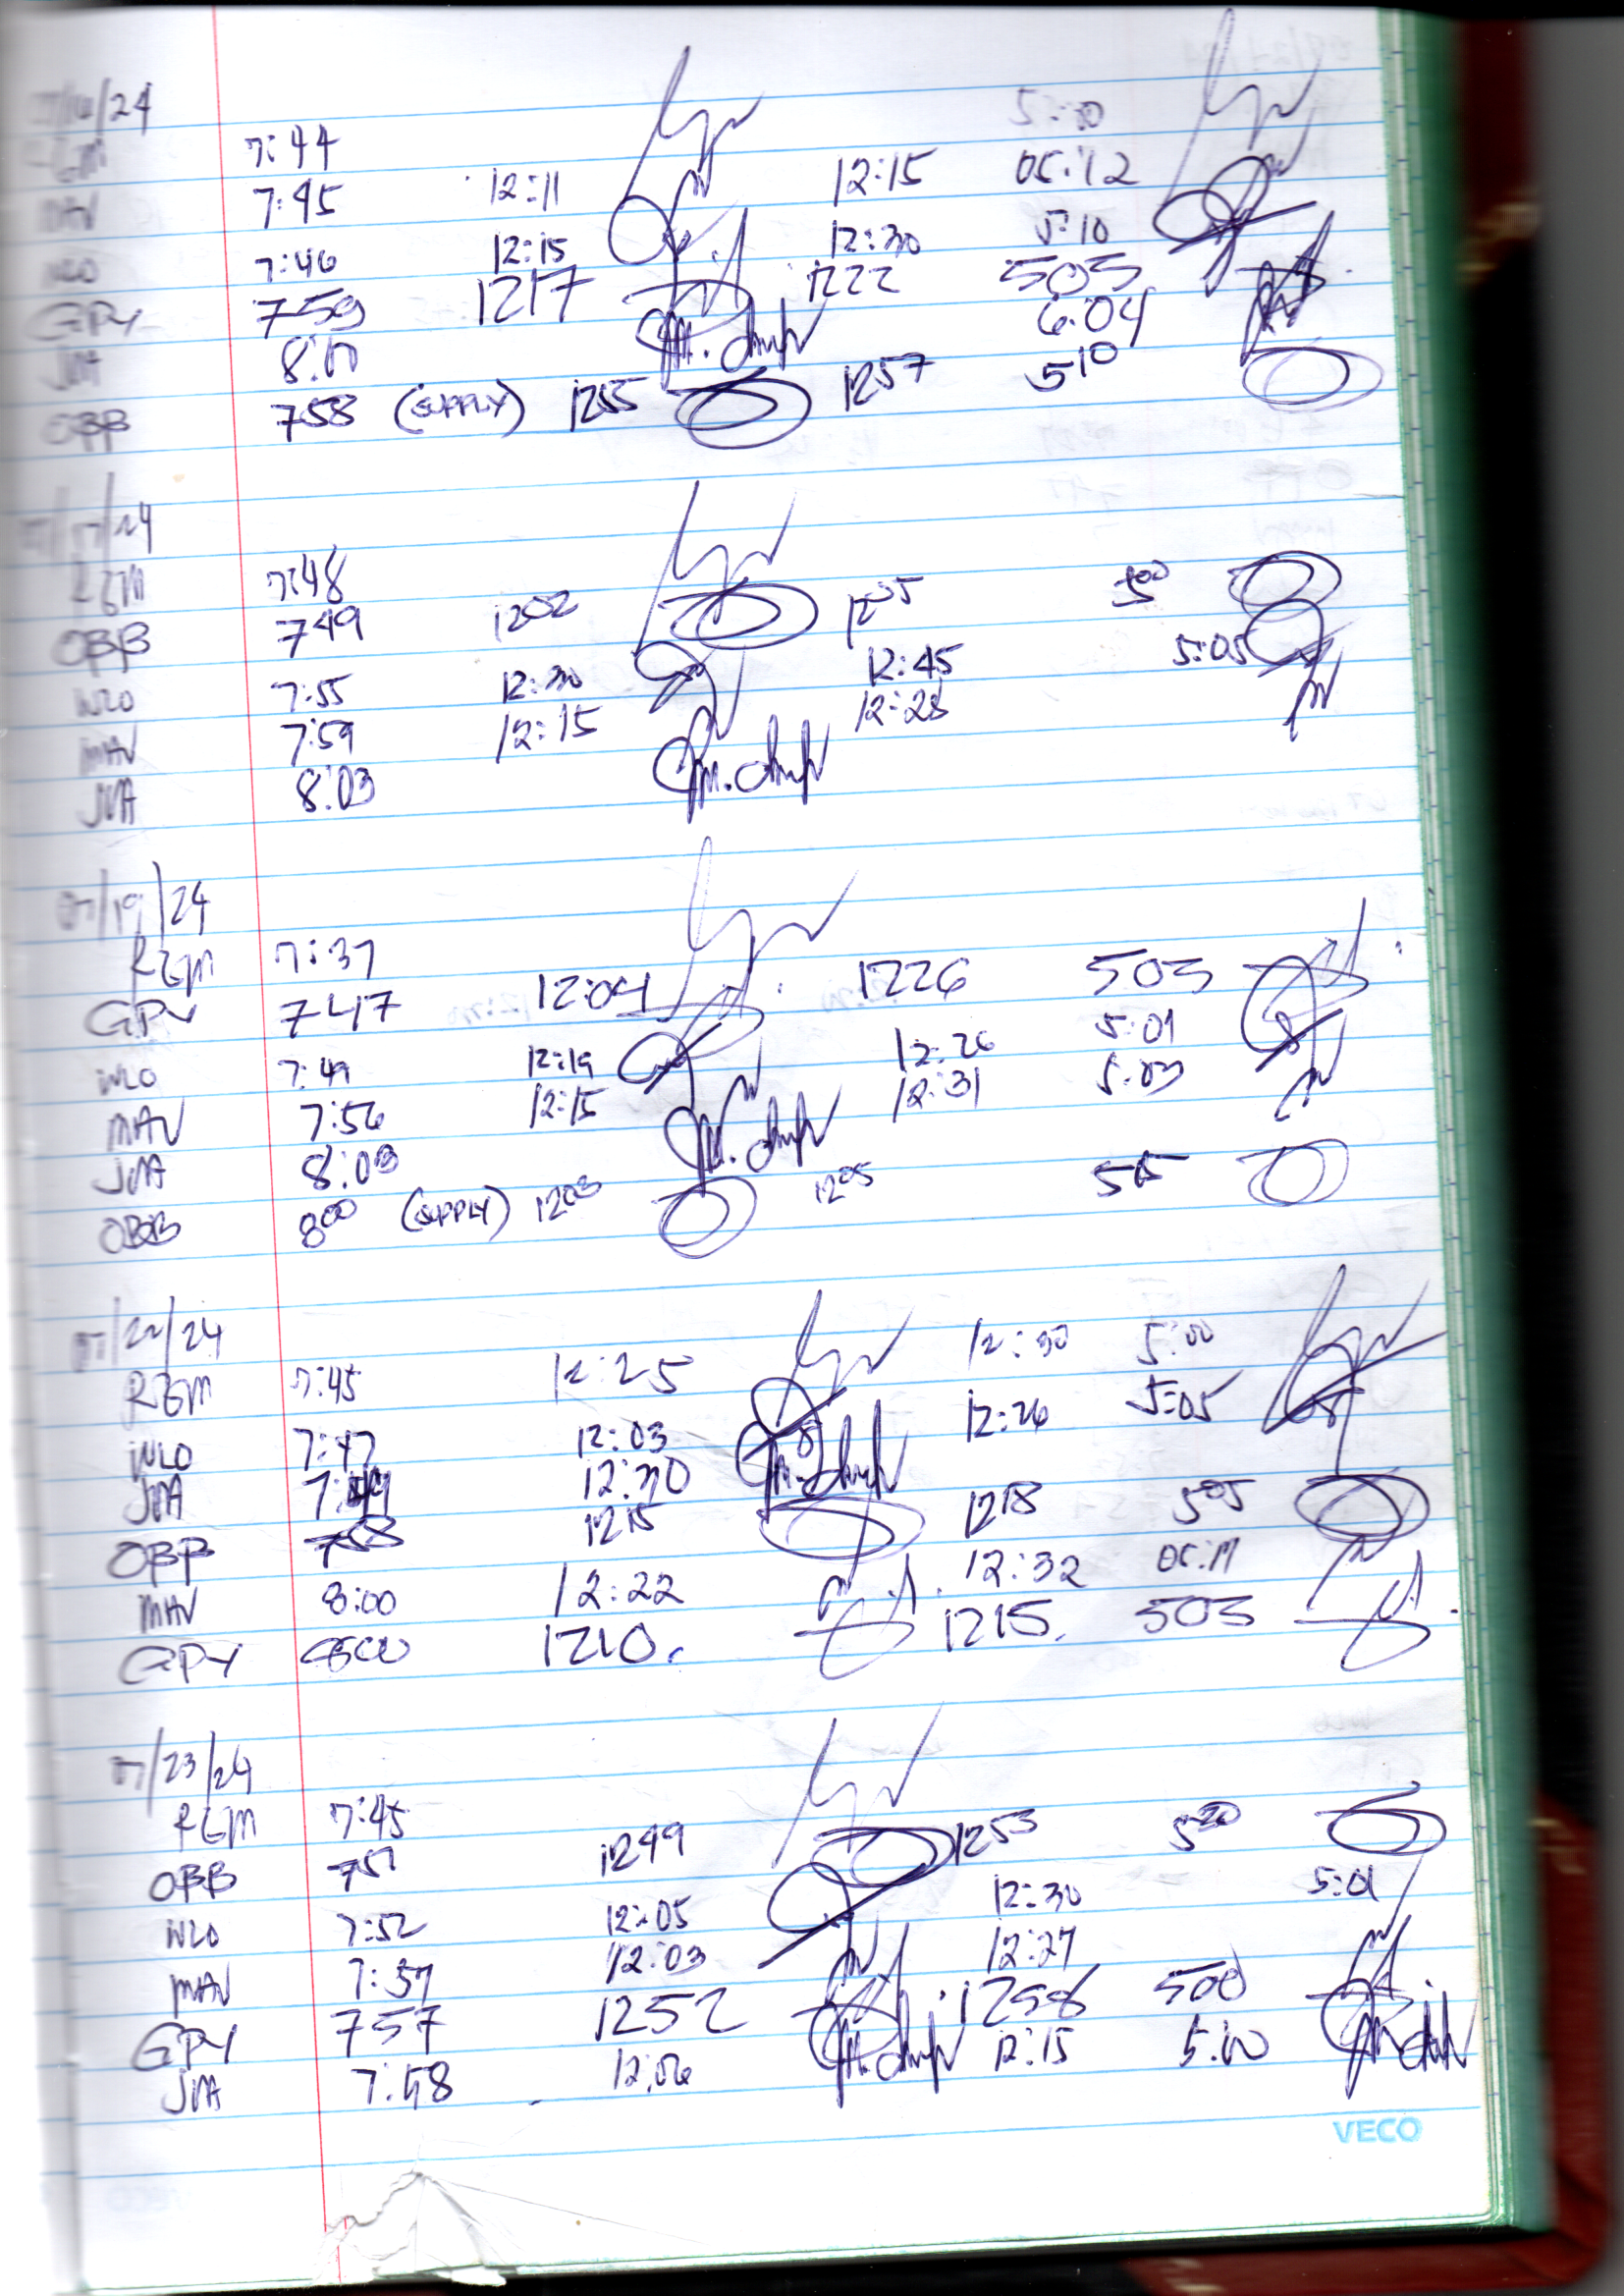 /24
7:44 5:00
7:45 12:11 12:15 05:12
WLO 7:46 12:15 12:30 5:10
GPY 759 1217 1222 503
JVA 8:00 6:04
OBB 758 (SUPPLY) 1255 1257 510
07/17/24
RGM 7:48
OBB 749 1202 1205 500
WLO 7:55 12:30 12:45 5:05
MAV 7:59 12:15 12:28
JVA 8:03
07/19/24
RGM 7:37
GPY 747 12:04 1226 503
WLO 7:49 12:19 12:26 5:01
MAV 7:56 12:15 12:31 5:03
JVA 8:03
OBB 800 (SUPPLY) 1203 1205 505
07/22/24
RGM 7:45 12:25 12:30 5:00
WLO 7:47 12:03 12:26 5:05
JVA 7:49 12:30
OBB 758 1215 1218 505
MAV 8:00 12:22 12:32
GPY 800 1210. 1215. 503
07/23/24
RGM 7:45
OBB 751 1249 1253 520
WLO 7:52 12:05 12:30 5:01
MAV 7:57 12:03 12:27
GPY 757 1252 1258 500
JVA 7:58 12:06 12:15 5:00
VECO